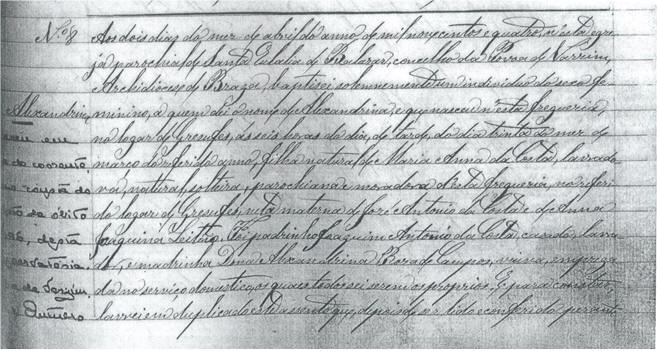 N.º 8
Aos dois dias do mez de abril do anno de mil novecentos e quatro, n'esta egre-
ja parochial de Santa Eulalia de Balazar, concelho da Povoa de Varzim,
Archidiocese de Braga, baptisei solemnemente um individuo do sexo fe-
minino, a quem dei o nome de Alexandrina, e que nasceu n'esta freguezia,
no logar de Gresufes, ás seis horas da tarde, do dia trinta do mez de
março do referido anno, filha natural de Maria Anna da Costa, lavrado
natural, solteira, parochiana e moradora d'esta freguezia, no referi
do logar de Gresufes, neta materna de José Antonio da Costa e de Anna
Joaquina Leitôa. Foi padrinho Joaquim Antonio da Costa, casado, lavra
dor, e madrinha Dona Alexandrina Rosa de Campos, viuva, emprega
da no serviço domestico, os quaes todos sei serem os proprios. E para constar
lavrei em duplicado este assento que, depois de ser lido e conferido perante
Alexandrina,
em
do corrente,